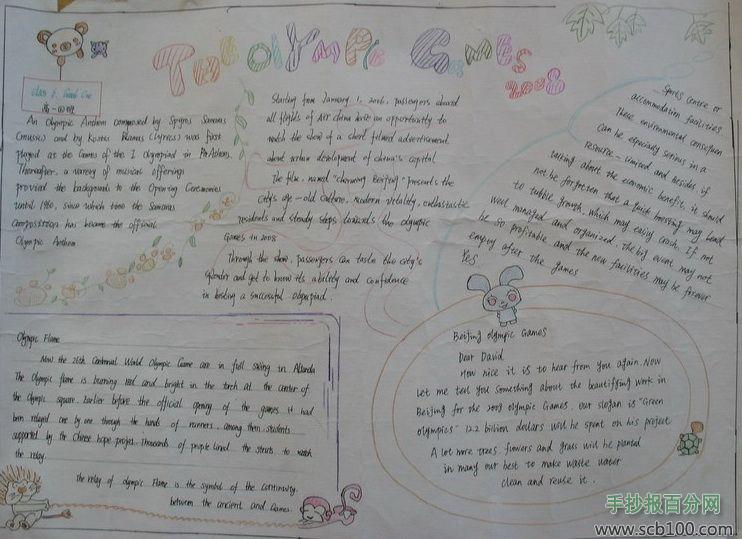 THE OLYMPIC GAMES
2008
Class 4. Grade One
高一四班
An Olympic Anthem composed by Spyros Samaras
(music) and by Kostis Palamas (lyrics) was first
played at the Games of the I Olympiad in Athens.
Thereafter, a variety of musical offerings
provided the background to the Opening Ceremonies
until 1960, since which time the Samaras
composition has become the official
Olympic Anthem
Starting from January 1, 2006, passengers aboard
all flights of Air China have an opportunity to
watch the show of a short filmed advertisement
about urban development of China's capital
The film, named "charming Beijing" presents the
city's age-old culture, modern vitality, enthusiastic
residents and steady steps towards the olympic
Games in 2008
Through the show, passengers can taste the city's
splendor and get to know its ability and confidence
in hosting a successful olympiad.
Sports Centre or
accommodation facilities
These environmental consequen
can be especially serious in a
resource-limited and besides if
talking about the economic benefits, it should
not be forgotten that a quick housing may lead
to bubble growth, which may easily crash. If not
well managed and organized, the big event may not
be so profitable, and the new facilities may be forever
empty after the games
Yes
Olympic Flame
Now the 26th Centennial World Olympic Game are in full swing in Atlanta
The Olympic flame is burning red and bright in the torch at the center of
the Olympic square. Earlier before the official opening of the games it had
been relayed one by one through the hands of runners, among them students
supported by the Chinese hope project. Thousands of people lined the streets to watch
the relay.
The relay of olympic Flame is the symbol of the continuity
between the ancient and Games.
Beijing olympic Games
Dear David.
How nice it is to hear from you again. Now
let me tell you something about the beautifying work in
Beijing for the 2008 olympic Games. our slogan is "Green
olympics" 12.2 billion dollars will be spent on this project
A lot more trees, flowers and grass will be planted
in many our best to make waste water
clean and reuse it.
手抄报百分网
www.scb100.com